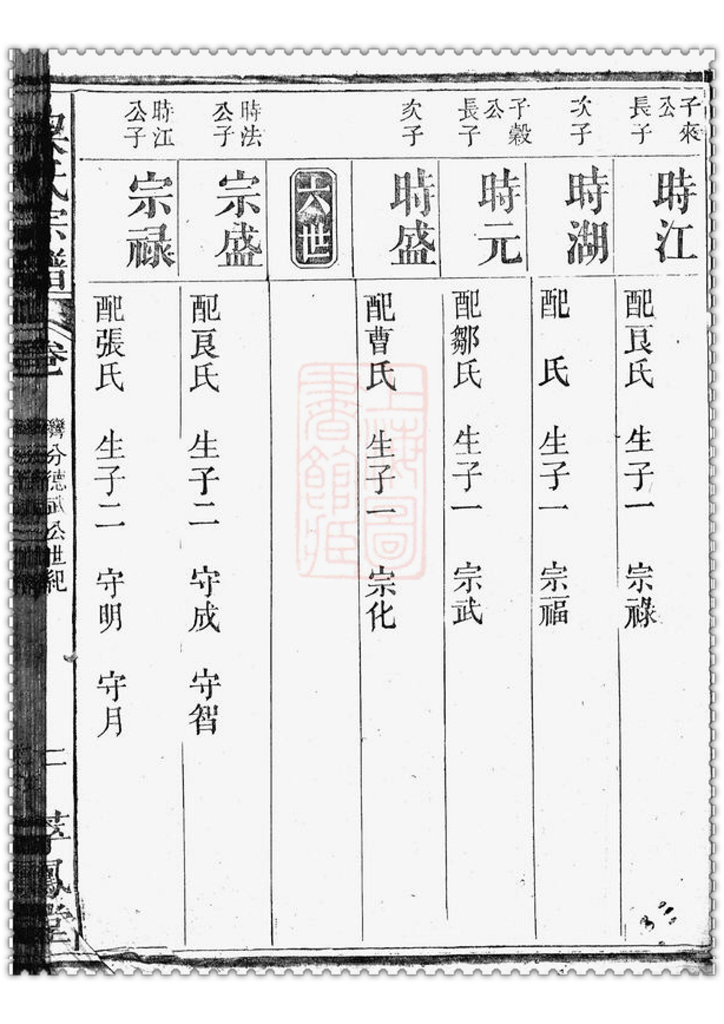 子來公長子
時江
配良氏 生子一 宗祿
次子
時湖
配 氏 生子一 宗福
子穀公長子
時元
配鄒氏 生子一 宗武
次子
時盛
配曹氏 生子一 宗化
六世
時法公子
宗盛
配良氏 生子二 守成 守智
時江公子
宗祿
配張氏 生子二 守明 守月
氏宗譜
卷
分德 公世紀
二
鳳堂
上海圖書館藏